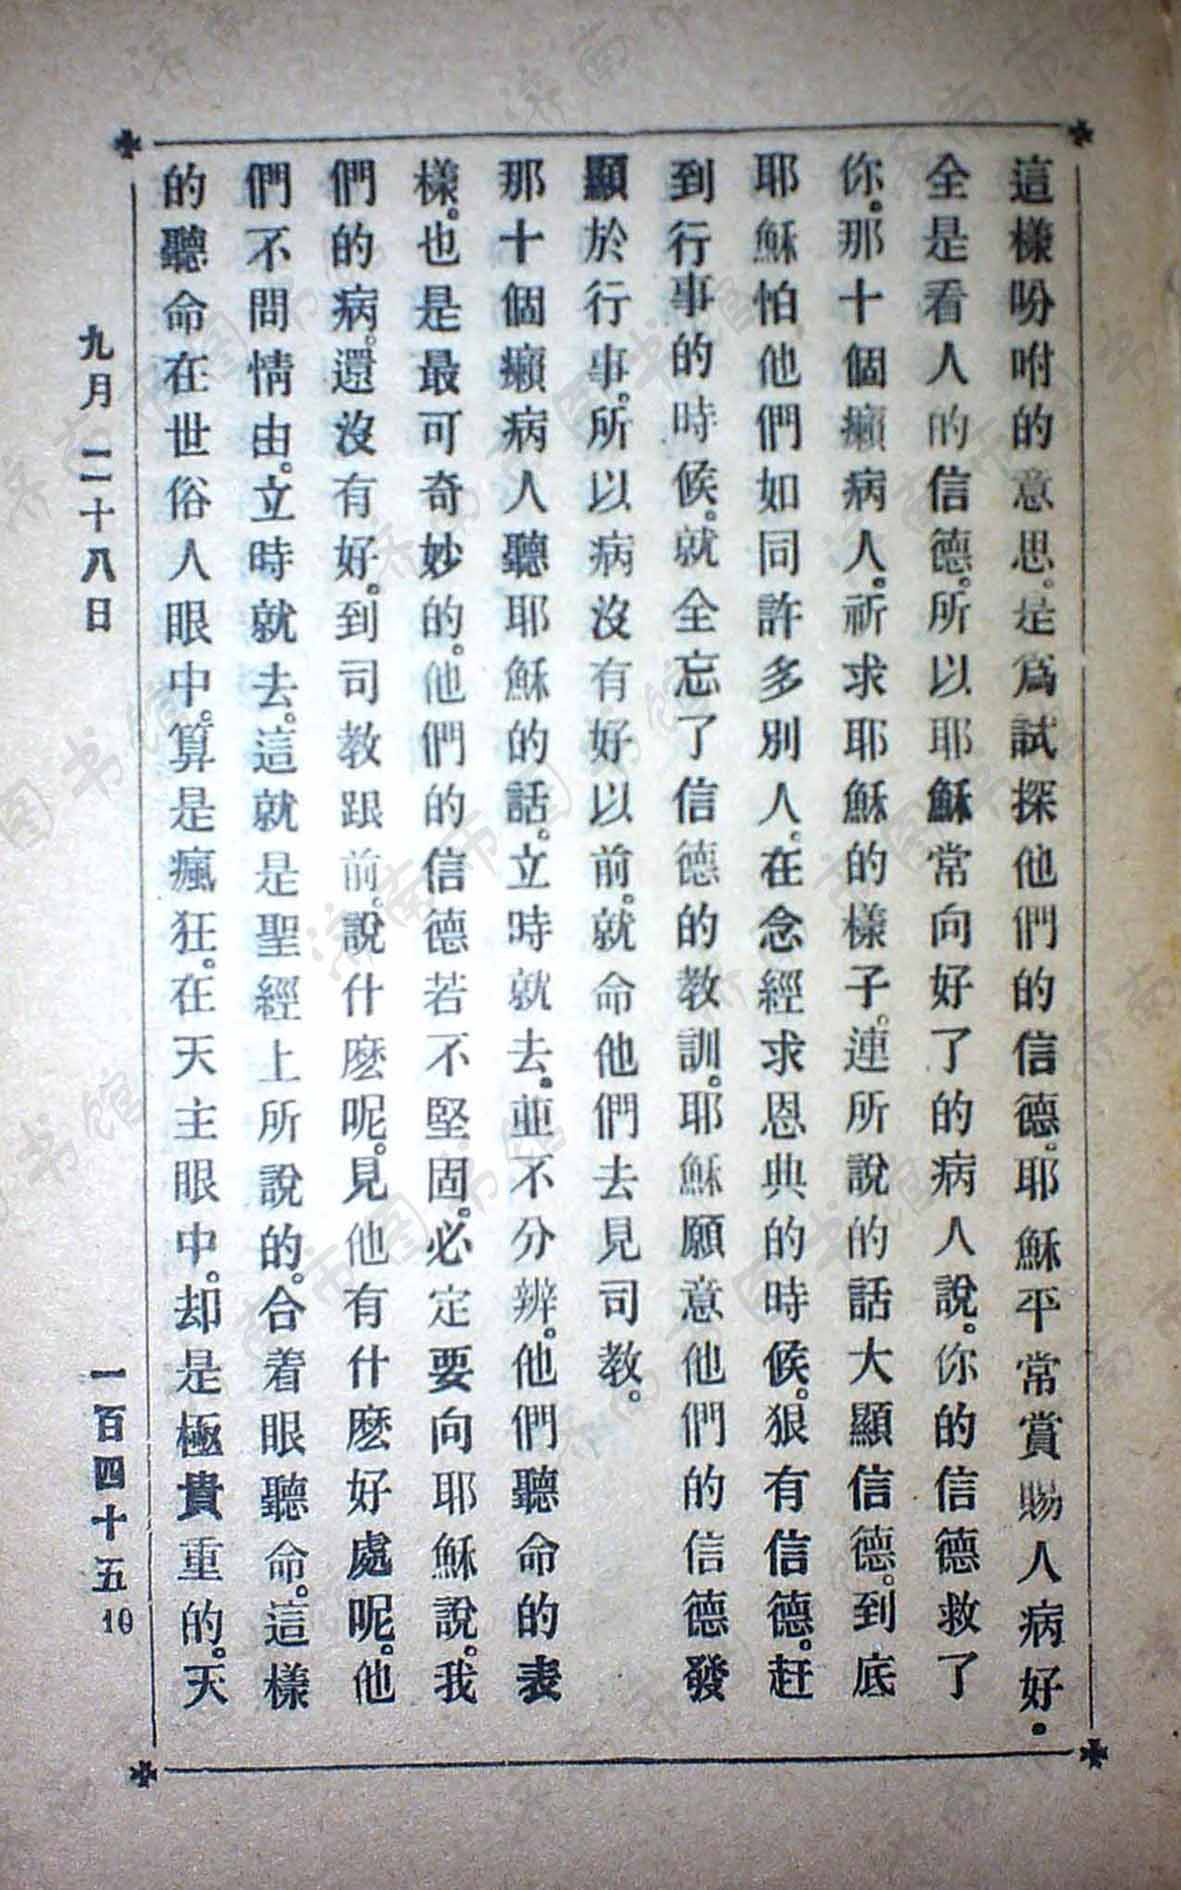 這樣吩咐的意思。是爲試探他們的信德。耶穌平常賞賜人病好。
全是看人的信德。所以耶穌常向好了的病人說。你的信德救了
你。那十個癩病人。祈求耶穌的樣子。連所說的話大顯信德。到底
耶穌怕他們如同許多別人。在念經求恩典的時候。狠有信德。赶
到行事的時候。就全忘了信德的教訓。耶穌願意他們的信德發
顯於行事。所以病沒有好以前。就命他們去見司教。
那十個癩病人聽耶穌的話。立時就去。並不分辨。他們聽命的表
樣。也是最可奇妙的。他們的信德若不堅固。必定要向耶穌說。我
們的病。還沒有好。到司教跟前。說什麽呢。見他有什麽好處呢。他
們不問情由。立時就去。這就是聖經上所說的。合着眼聽命。這樣
的聽命在世俗人眼中。算是瘋狂。在天主眼中。却是極貴重的。天
九月二十八日
一百四十五
10
济南市图书馆